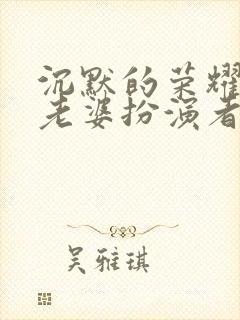 沉默的荣耀
老婆扮演者
吴雅琪